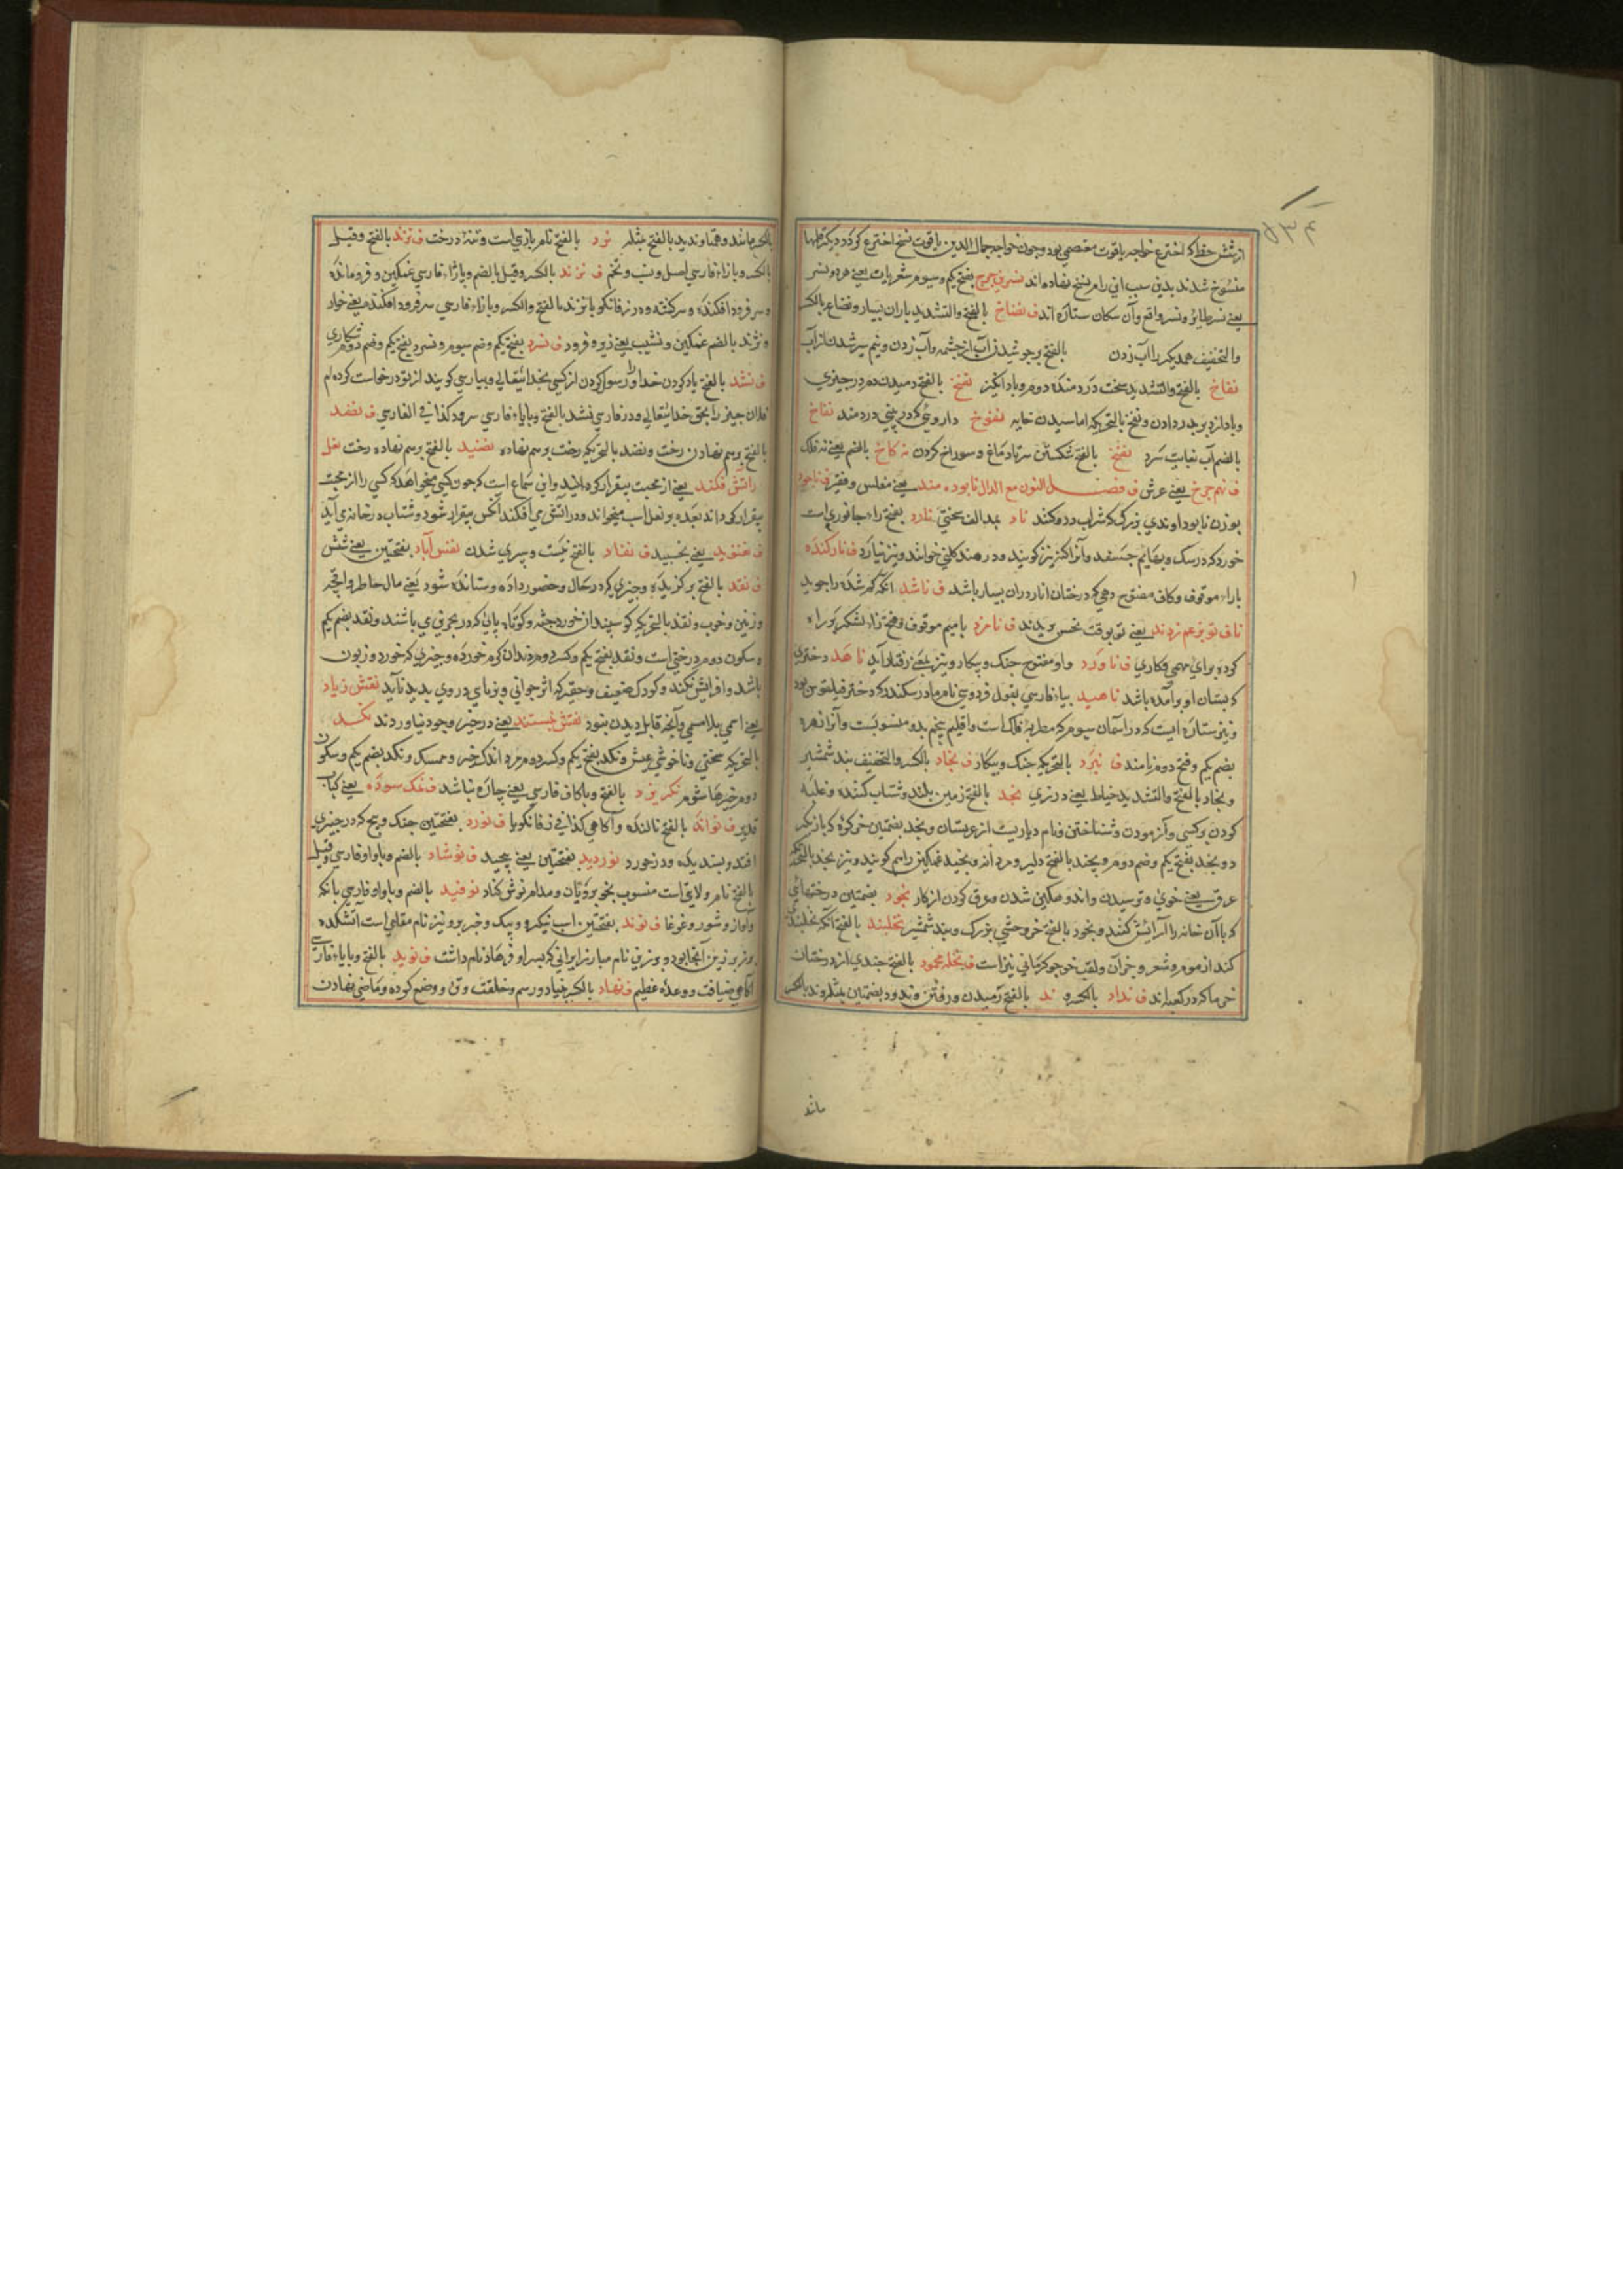 ۵۳۴
از شش خط که اختراع خواجه یاقوت معتصمی بود و چون خواجه جمال الدین یاقوت نسخ اختراع کرد دیگر قلمها
منسوخ شدند بدین سبب این را نسخ نهاده اند نسرین چرخ بفتح یکم و سیوم شعریات یعنے هر دو نسر
یعنے نسر طایر و نسر واقع وآن سکان ستاره اند ف نضاخ بالفتح والتشدید باران بسیار و نضاخ بالکسر
والتخفیف همدیگر را آب زدن بالفتح بر جوشیدن آب از چشمه وآب زدن و نیم سیر شدن از آب
نفاخ بالفتح والتشدید سخت درد منده دوم و باد انگیز نفخ بالفتح دمیدن دم در چیزی
و باد از دبر بدر دادن و نفخ بالتحریک اماسیدن خایه نفوخ داروئی که در بینی دردمند نقاخ
بالضم آب بغایت سرد نقخ بالفتح شکستن سر تا دماغ و سوراخ کردن نه کاخ بالضم یعنے نه فلک
ف نهم چرخ یعنے عرش ف فصل النون مع الدال نابود مند یعنے مفلس و فقیر ف ناجود
بوزن نابود اوندی بزرگ که شراب درو کنند ناد بمد الف سختی نارد بفتح راء جانوری است
خورد که در سگ و بهایم چسفد وآنرا کنه نیز کویند و در هند کلنی خوانند و نیز نیارد ف نارکنده
باراء موقوف و کاف مفتوح دهی که درختان انار دران بسیار باشد ف ناشد آنکه گم شده را جوید
ناف تو بر غم زدند یعنے تو بوقت نحس بریدند ف نامزد با میم موقوف و فتح زاء لشکر که برا
کرده برای مهمی و کاری ف ناورد واو مفتوح جنک و پیکار و نیز بمعنے رفتار آید ناهد دختری
که پستان او بر آمده باشد ناهید بیاء فارسی بقول فردوسی نام مادر سکندر که دختر فیلقوس بود
و نیز ستاره ایست که در آسمان سیوم که مطربه فلک است و اقلیم پنجم بدو منسوبست وآنرا زهره
بضم یکم و فتح دوم نامند ف نبرد بالتحریک جنک و پیکار ف نجاد بالکسر والتخفیف بند شمشیر
و نجاد بالفتح والتشدید خیاط یعنے درزی نجد بالفتح زمین بلند و شتاب کننده و غلبه
کردن بر کسی وآزمودن و شناختن و نام دیاریست از عربستان و نجد بضمتین
دو نجد بفتح یکم و ضم دوم و نجد بالفتح دلیر و مردانه و نجید غمکین را هم کویند و نیز نجد بالتحریک
عرق یعنے خوی و ترسیدن و اندوهکین شدن و عرق کردن از کار نجود بضمتین درختهای
که با آن خانه را آرایش کنند و نجود بالفتح خر وحشی بزرک و بند شمشیر نخلبند بالفتح آنکه نخلبندی
کند از موم و شعر و جز آن و لقب خواجو کرمانی نیز است ف نخله محمود بالفتح چندی از درختان
خرما که در کعبه اند ف نداد بالکسر و ند بالفتح رمیدن و رفتن و ندود بضمتین مثله و ند بالکسر
ماند
بالکسر مانند و همتا و ندید بالفتح مثله نرد بالفتح نام بازی است و تنهٔ درخت ف نژند بالفتح و قیل
بالکسر و با زاء فارسی اصل و بیخ و تخم ف نژند بالکسر و قیل بالضم و با زاء فارسی غمکین و فرومانده
و سر فرود افکنده و سرکشته و در زفانکویا نژند بالفتح والکسر و با زاء فارسی سر فرود افکنده یعنے خوار
و نژند بالضم غمکین و نشیب یعنے زیر و فرود ف نسرد بفتح یکم و ضم سیوم و نسرد بفتح یکم و ضم دوم شکاری
ف نشد بالفتح یاد کردن خدا و رسول را و سوال کردن از کسی بخدایتعالی و بپارسی کویند از تو درخواست کرده ام
فلان چیز را بحق خدایتعالی و در فارسی نشد بالفتح و با یاء فارسی سرود کذا فے الفارسی ف نضد
بالفتح برهم نهادن رخت و نضد بالتحریک رخت برهم نهاده نضید بالفتح برهم نهاده رخت نعل
در آتش فکند یعنے از محبت بیقرار کرده اند و این سماع است که چون کسی میخواهد که کسی را از محبت
بیقرار کرداند بعده بر نعل اسپ میخواند و در آتش می افکند آنکس بیقرار شود و شتاب در خانه می آید
ف نغنوید یعنے نخسپید ف نفاد بالفتح نیست و سپری شدن نفس آباد بفتحتین یعنے شش
ف نقد بالفتح برکزیده و چیزی که در حال و حضور داده و ستانده شود یعنے مال حاضر
وزین و خوب و نقد بالتحریک کوسپندان خورد جثه و کوتاه پای که در بحرین می باشند و نقد بضم یکم
و سکون دوم درختی است و نقد بفتح یکم و کسر دوم دندان کرم خورده و چیزی که خورد و زبون
باشد و افزایش نکند و کودک ضعیف و حقیر که اثر جوانی و زیبای در وی بدید ناید نقش زیاد
یعنے اسمی بلا مسمی وآنچه قابل دیدن نبود نقش نبستند یعنے در حیز وجود نیاوردند نکد
بالتحریک سختی و ناخوشی عیش و نکد بفتح یکم و کسر دوم مرد اندک خیر و ممسک و نکد بضم یکم و سکون
دوم خیرها شوم نکریزد بالفتح و با کاف فارسی یعنے چاره نباشد ف نمک سوده یعنے کباب
قدیر ف نواند بالفتح نالنده و آکاهی کذا فے زفانکویا ف نورد بفتحتین جنک و پیچ که در چیزی
افتد و پسندیده و درخورد نوردید بفتحتین یعنے پیچید ف نوشاد بالضم و با واو فارسی و قیل
بالفتح نام ولایتی است منسوب بخوبرویان و مدام نوش کناد نوفید بالضم و با واو فارسی بانک
و آواز و شور و غوغا ف نوند بفتحتین اسپ نیکرو و پیک و خبر بر و نیز نام مقامی است آتشکده
برزین آنجا بود و نیز نام مبارز ایرانی که پسر او فرهاد نام داشت ف نوید بالفتح و با یاء فارسی
آکاهی ضیافت و وعده عظیم ف نهاد بالکسر بنیاد و رسم و خلقت و تن و وضع کرده و ماضی نهادن